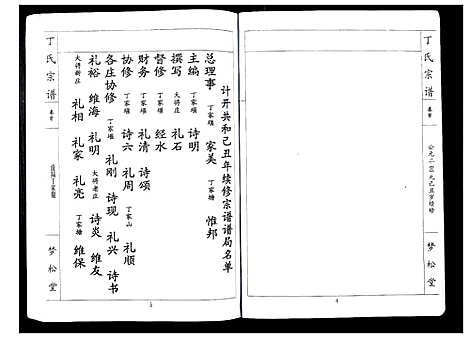 丁氏宗谱
卷首
公元二〇〇九己丑岁续修
梦松堂
4
计开共和己丑年续修宗谱谱局名单
总理事 丁家堰 家美 丁家塘 惟邦
主编 丁家堰 诗明
撰写 大蒋庄 礼石
督修 丁家堰 经水
财务 丁家堰 礼清 诗颂
协修 丁家堰 诗六 礼周 丁家山 礼顺
各庄协修 丁家堰 礼刚 诗现 礼兴 诗书
礼裕 维海 礼明 大蒋老庄 诗炎 维友
大蒋新庄 礼相 礼家 礼亮 丁家塘 维保
5
丁氏宗谱
卷首
梦松堂